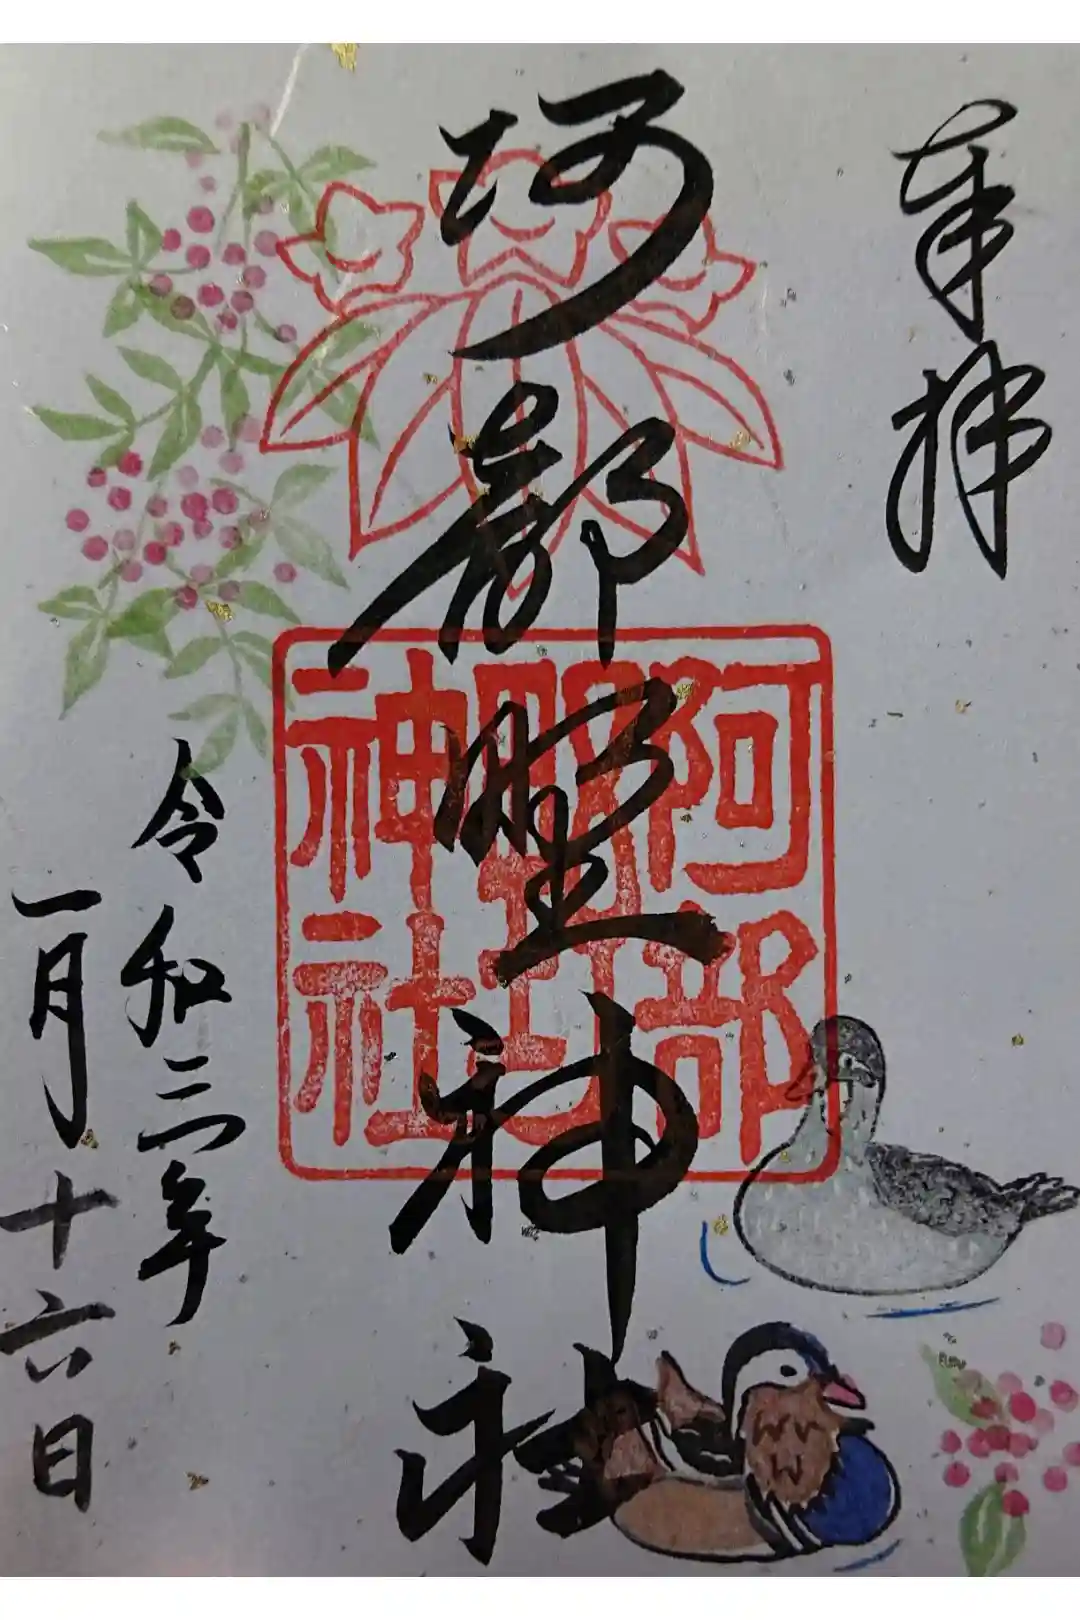 奉拝
阿部野神社
阿部
野神社
令和三年
一月十六日